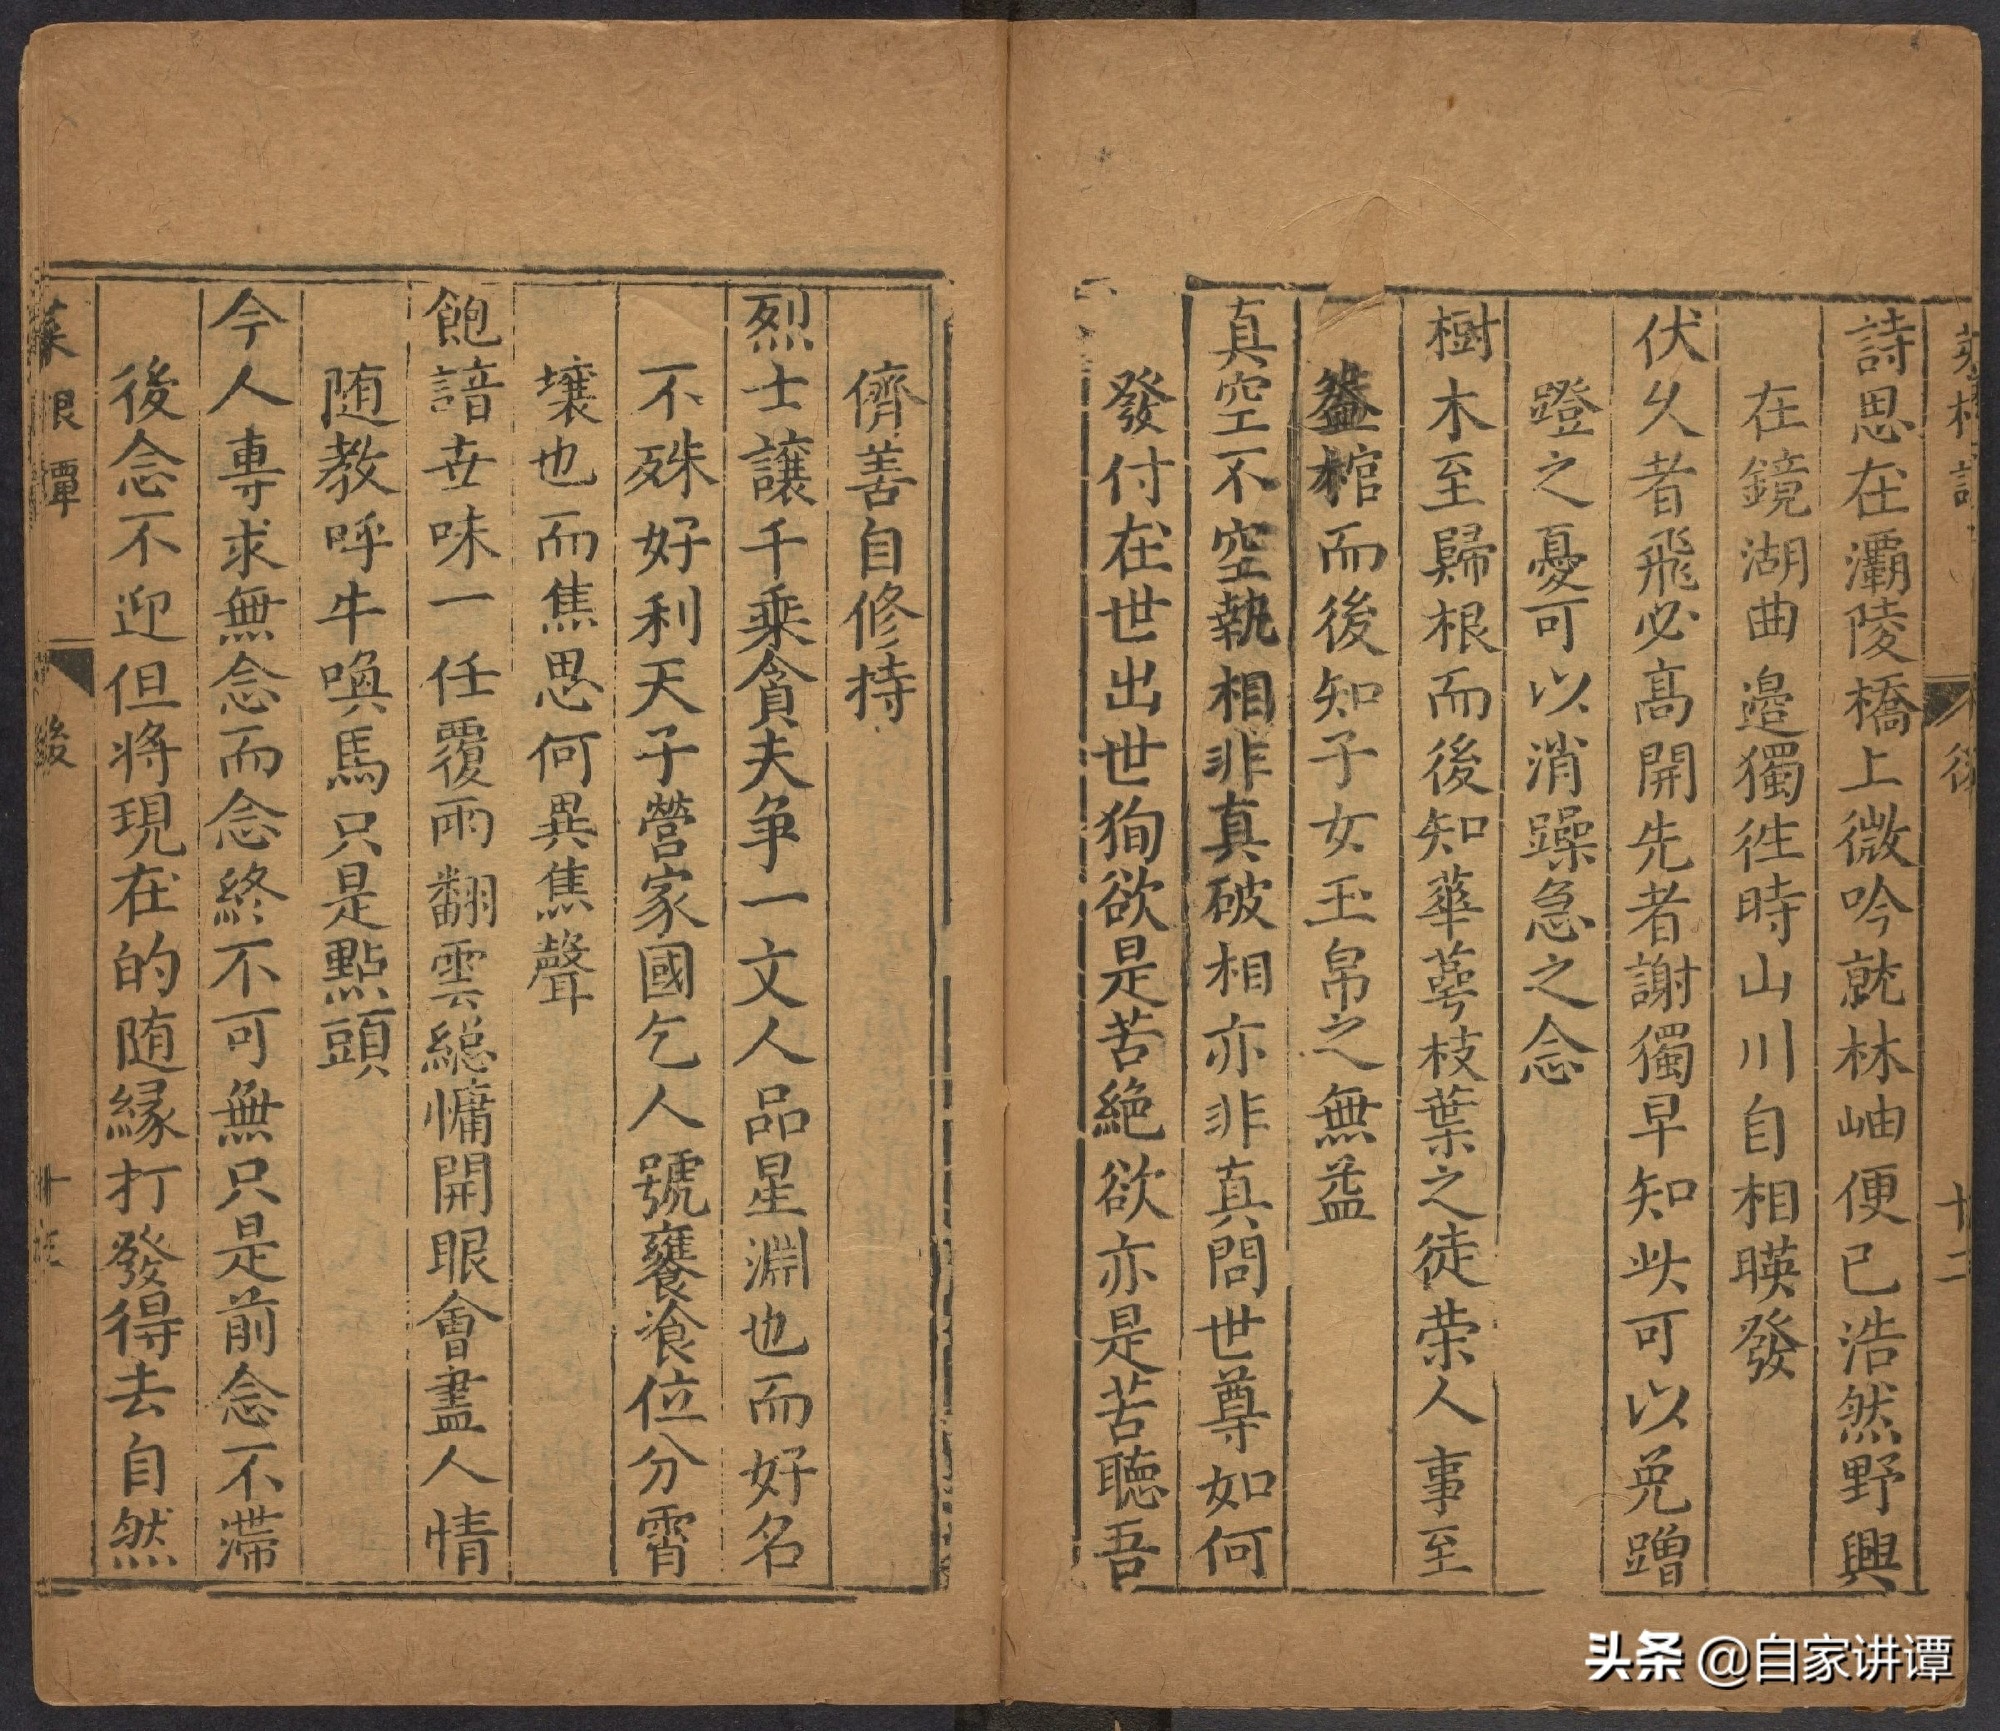 詩思在灞陵橋上微吟就林岫便已浩然野興
在鏡湖曲邉獨徃時山川自相暎發
伏乆者飛必髙開先者謝獨早知此可以免蹭
蹬之憂可以消躁急之念
樹木至歸根而後知華萼枝葉之徒荣人事至
葢棺而後知子女玉帛之無益
真空不空執相非真破相亦非真問世尊如何
發付在世出世狥欲是苦絶欲亦是苦聽吾
儕善自修持
烈士讓千乘貪夫争一文人品星淵也而好名
不殊好利天子營家國乞人號饔飧位分霄
壤也而焦思何異焦聲
飽諳世味一任覆雨翻雲緫慵開眼會盡人情
随教呼牛喚馬只是點頭
今人專求無念而念終不可無只是前念不滯
後念不迎但将現在的随縁打發得去自然
菜根譚
後
十二
头条 @自家讲谭